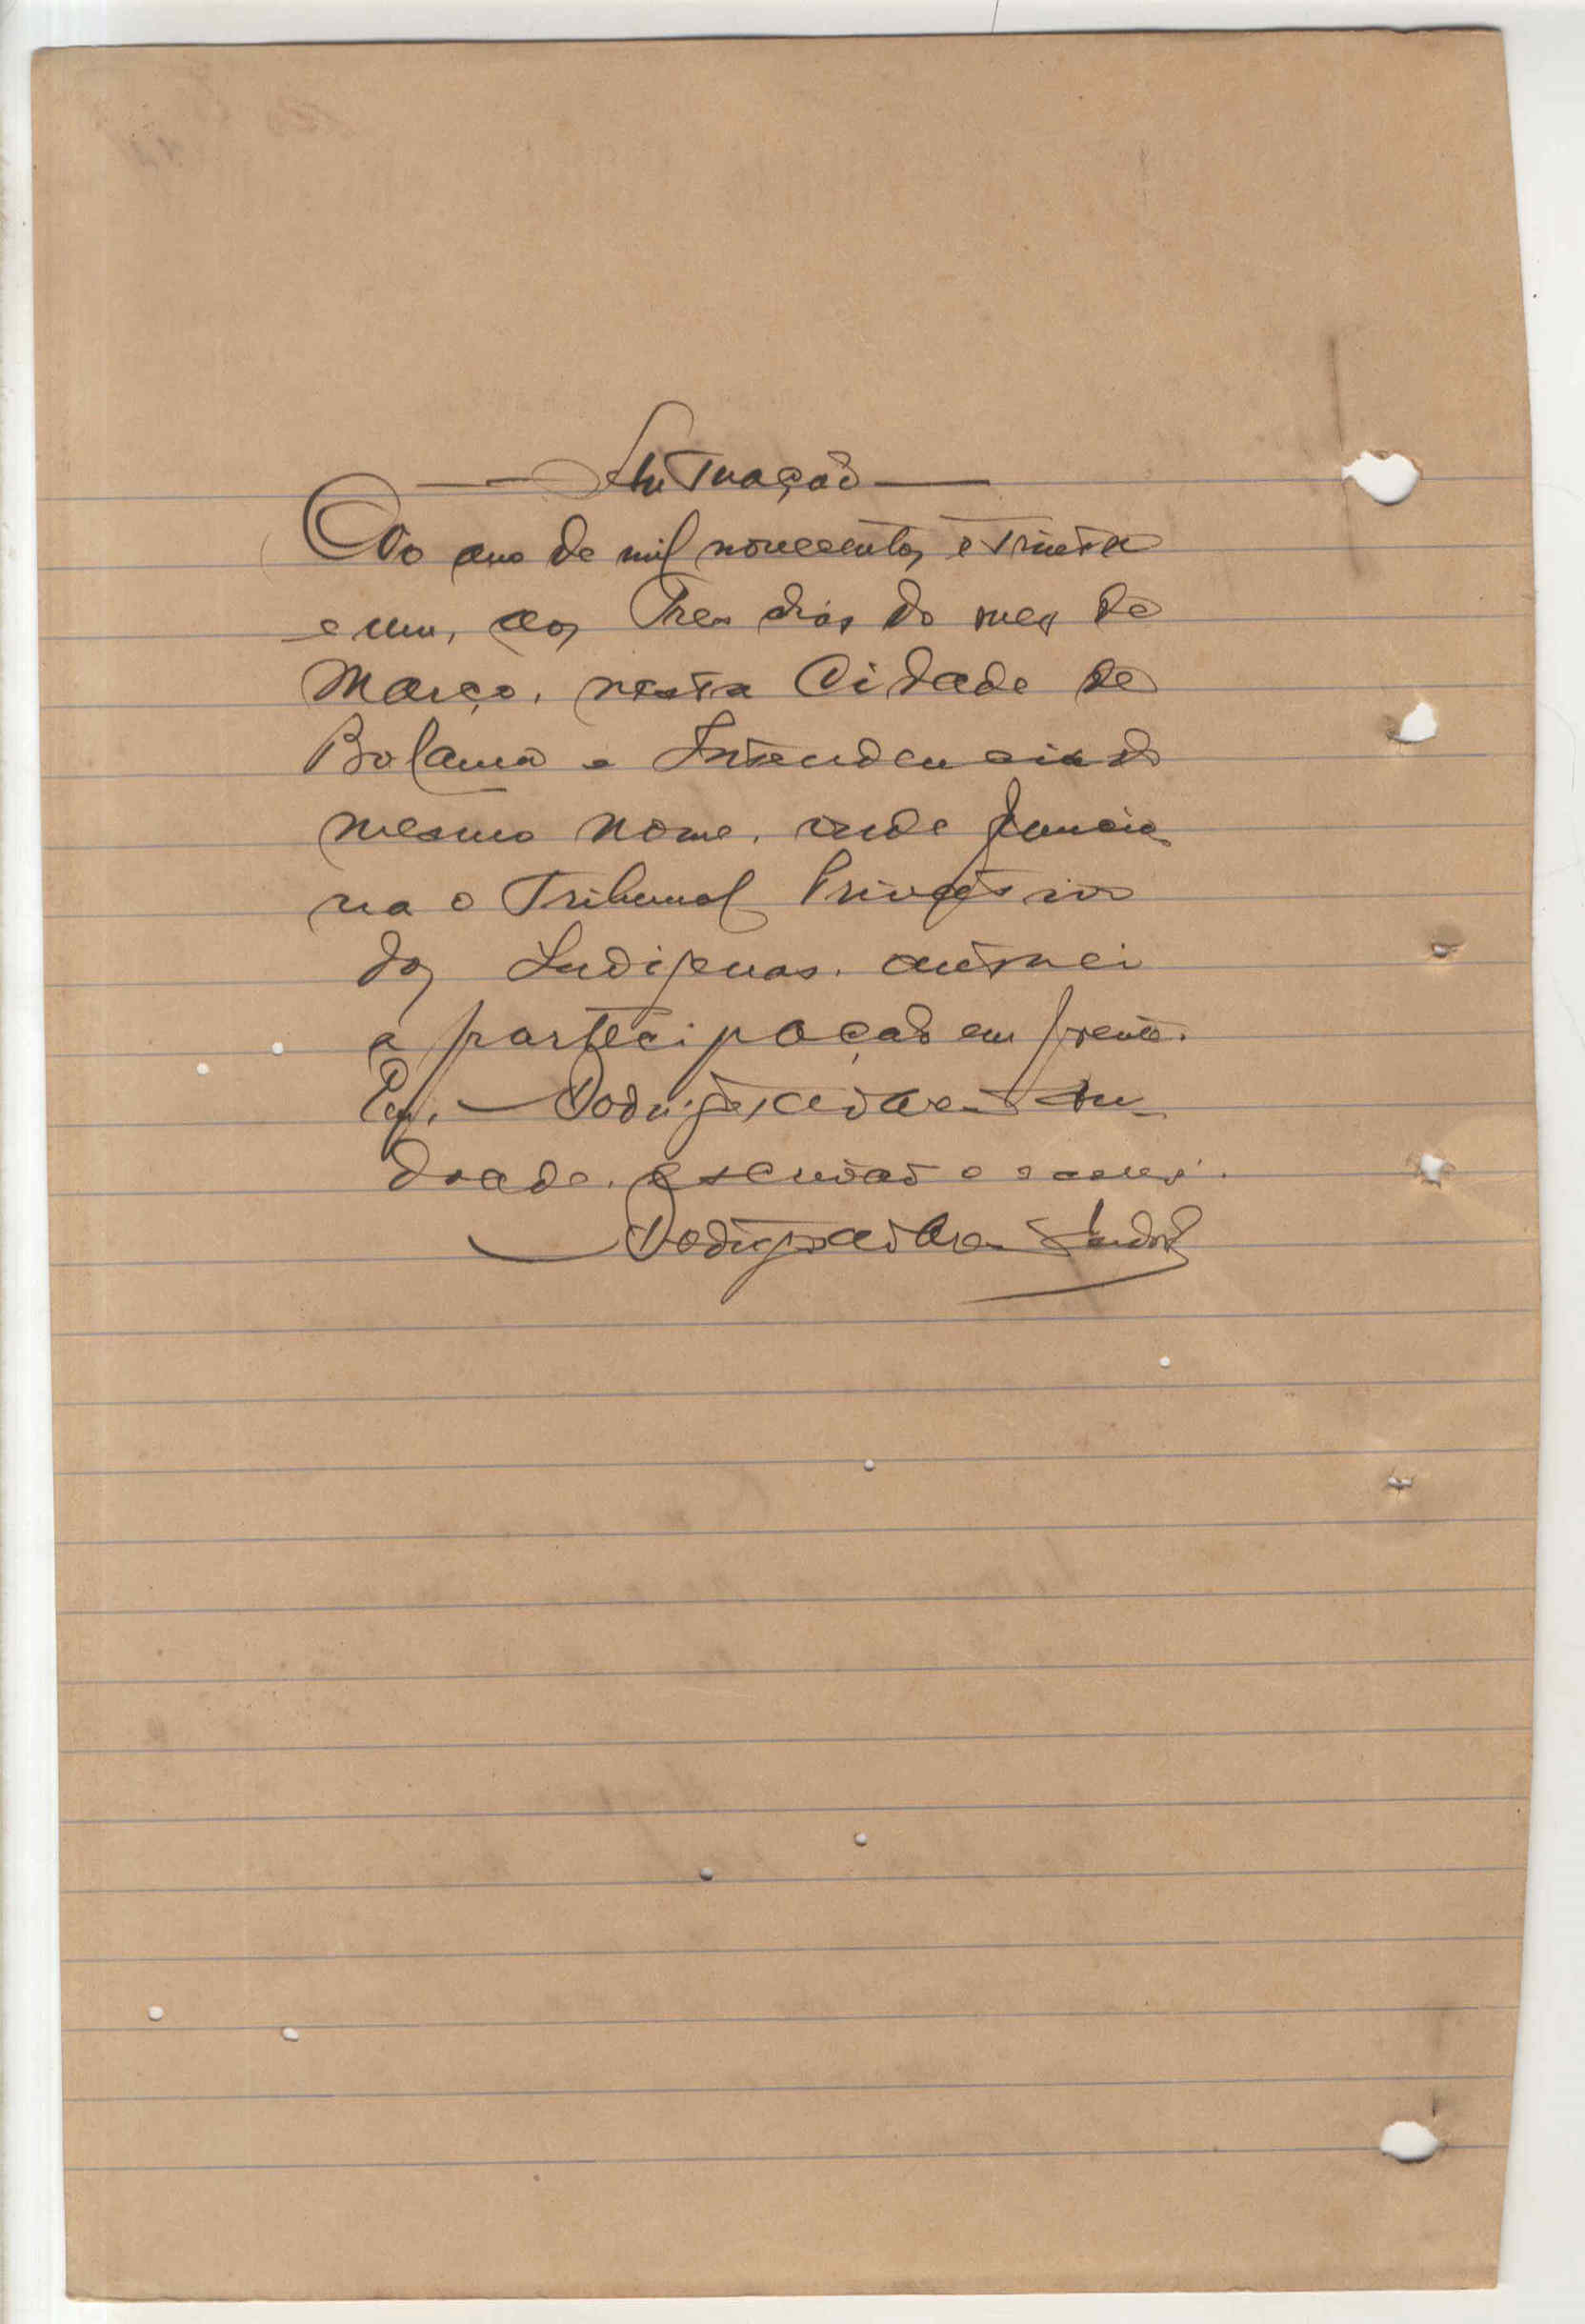 Autuação
No ano de mil novecentos e trinta
e um, aos tres dias do mes de
Março, nesta Cidade de
Bolama e Intendencia do
mesmo nome, onde funcio
na o Tribunal Privativo
dos Indigenas, autuei
a participação em frente.
Eu, An
drade, escrivão o escrevi.